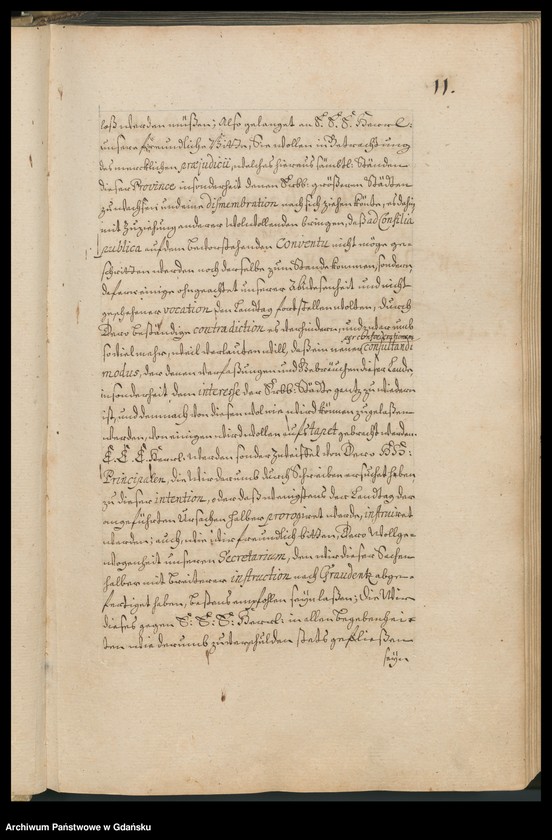 11.
loß werden müßen; Also gelanget an E. E. E. Herrl:
unsere freundliche Bitte, Sie wollen in Betrachtung
des mercklichen præjudicii, welches hieraus sämbtl: Ständen
dieser Province insonderheit denen Srbb: größeren Städten
zuwachsen und eine dismembration nach sich ziehen könte, es dahin
mit Zuziehung anderer Wolwollenden bringen, daß ad Consilia
publica auf dem bevorstehenden Conventu nicht möge ge-
schritten werden noch derselbe zum Stande kommen, sondern
dafern einige ohngeachtet unserer Abwesenheit und nicht
geschehener vocation den Landtag fortstellen wolten, durch
Dero beständige contradiction es verhindern; und zwar umb
so viel mehr, weil verlauten will, daß ein neuer consultandi
modus, der denen verfaßungen und Gebräuchen dieser Lande,
insonderheit dem interesse der Srbb: Städte gantz zu wiedern
ist, und demnach von diesen wol nie wird können zugelaßen
werden, von einigen wird wollen aufs tapet gebracht werden.
E. E. E. Herrl. werden sonder Zweiffel von Dero HH:
Principalen, die Wir darumb durch Schreiben ersuchet haben
zu dieser intention, oder daß wenigstens der Landtag der
angeführten Ursachen halber prorogiret werde, instruiret
werden; auch, wie wir freundlich bitten, Dero Wollge-
wogenheit unseren Secretarium, den wir dieser Sachen
halber mit breiterer instruction nach Graudentz abge-
fertiget haben, bestens empfohlen seyn laßen; die Wir
dieses gegen E: E: E: Herrl: in allen begebenhei-
ten wiederumb zu verschulden stets gefließen
seyn
Archiwum Państwowe w Gdańsku